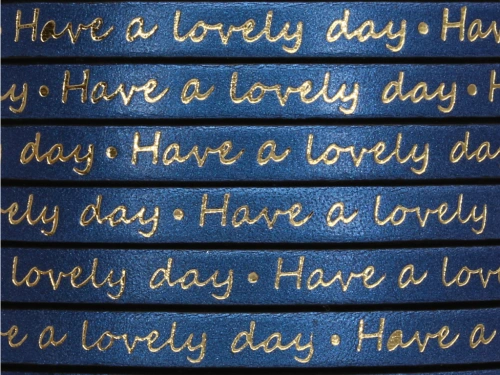 Have a lovely day • Hav
y • Have a lovely day • H
day • Have a lovely da
ely day • Have a lovely
lovely day • Have a lov
e a lovely day • Have a